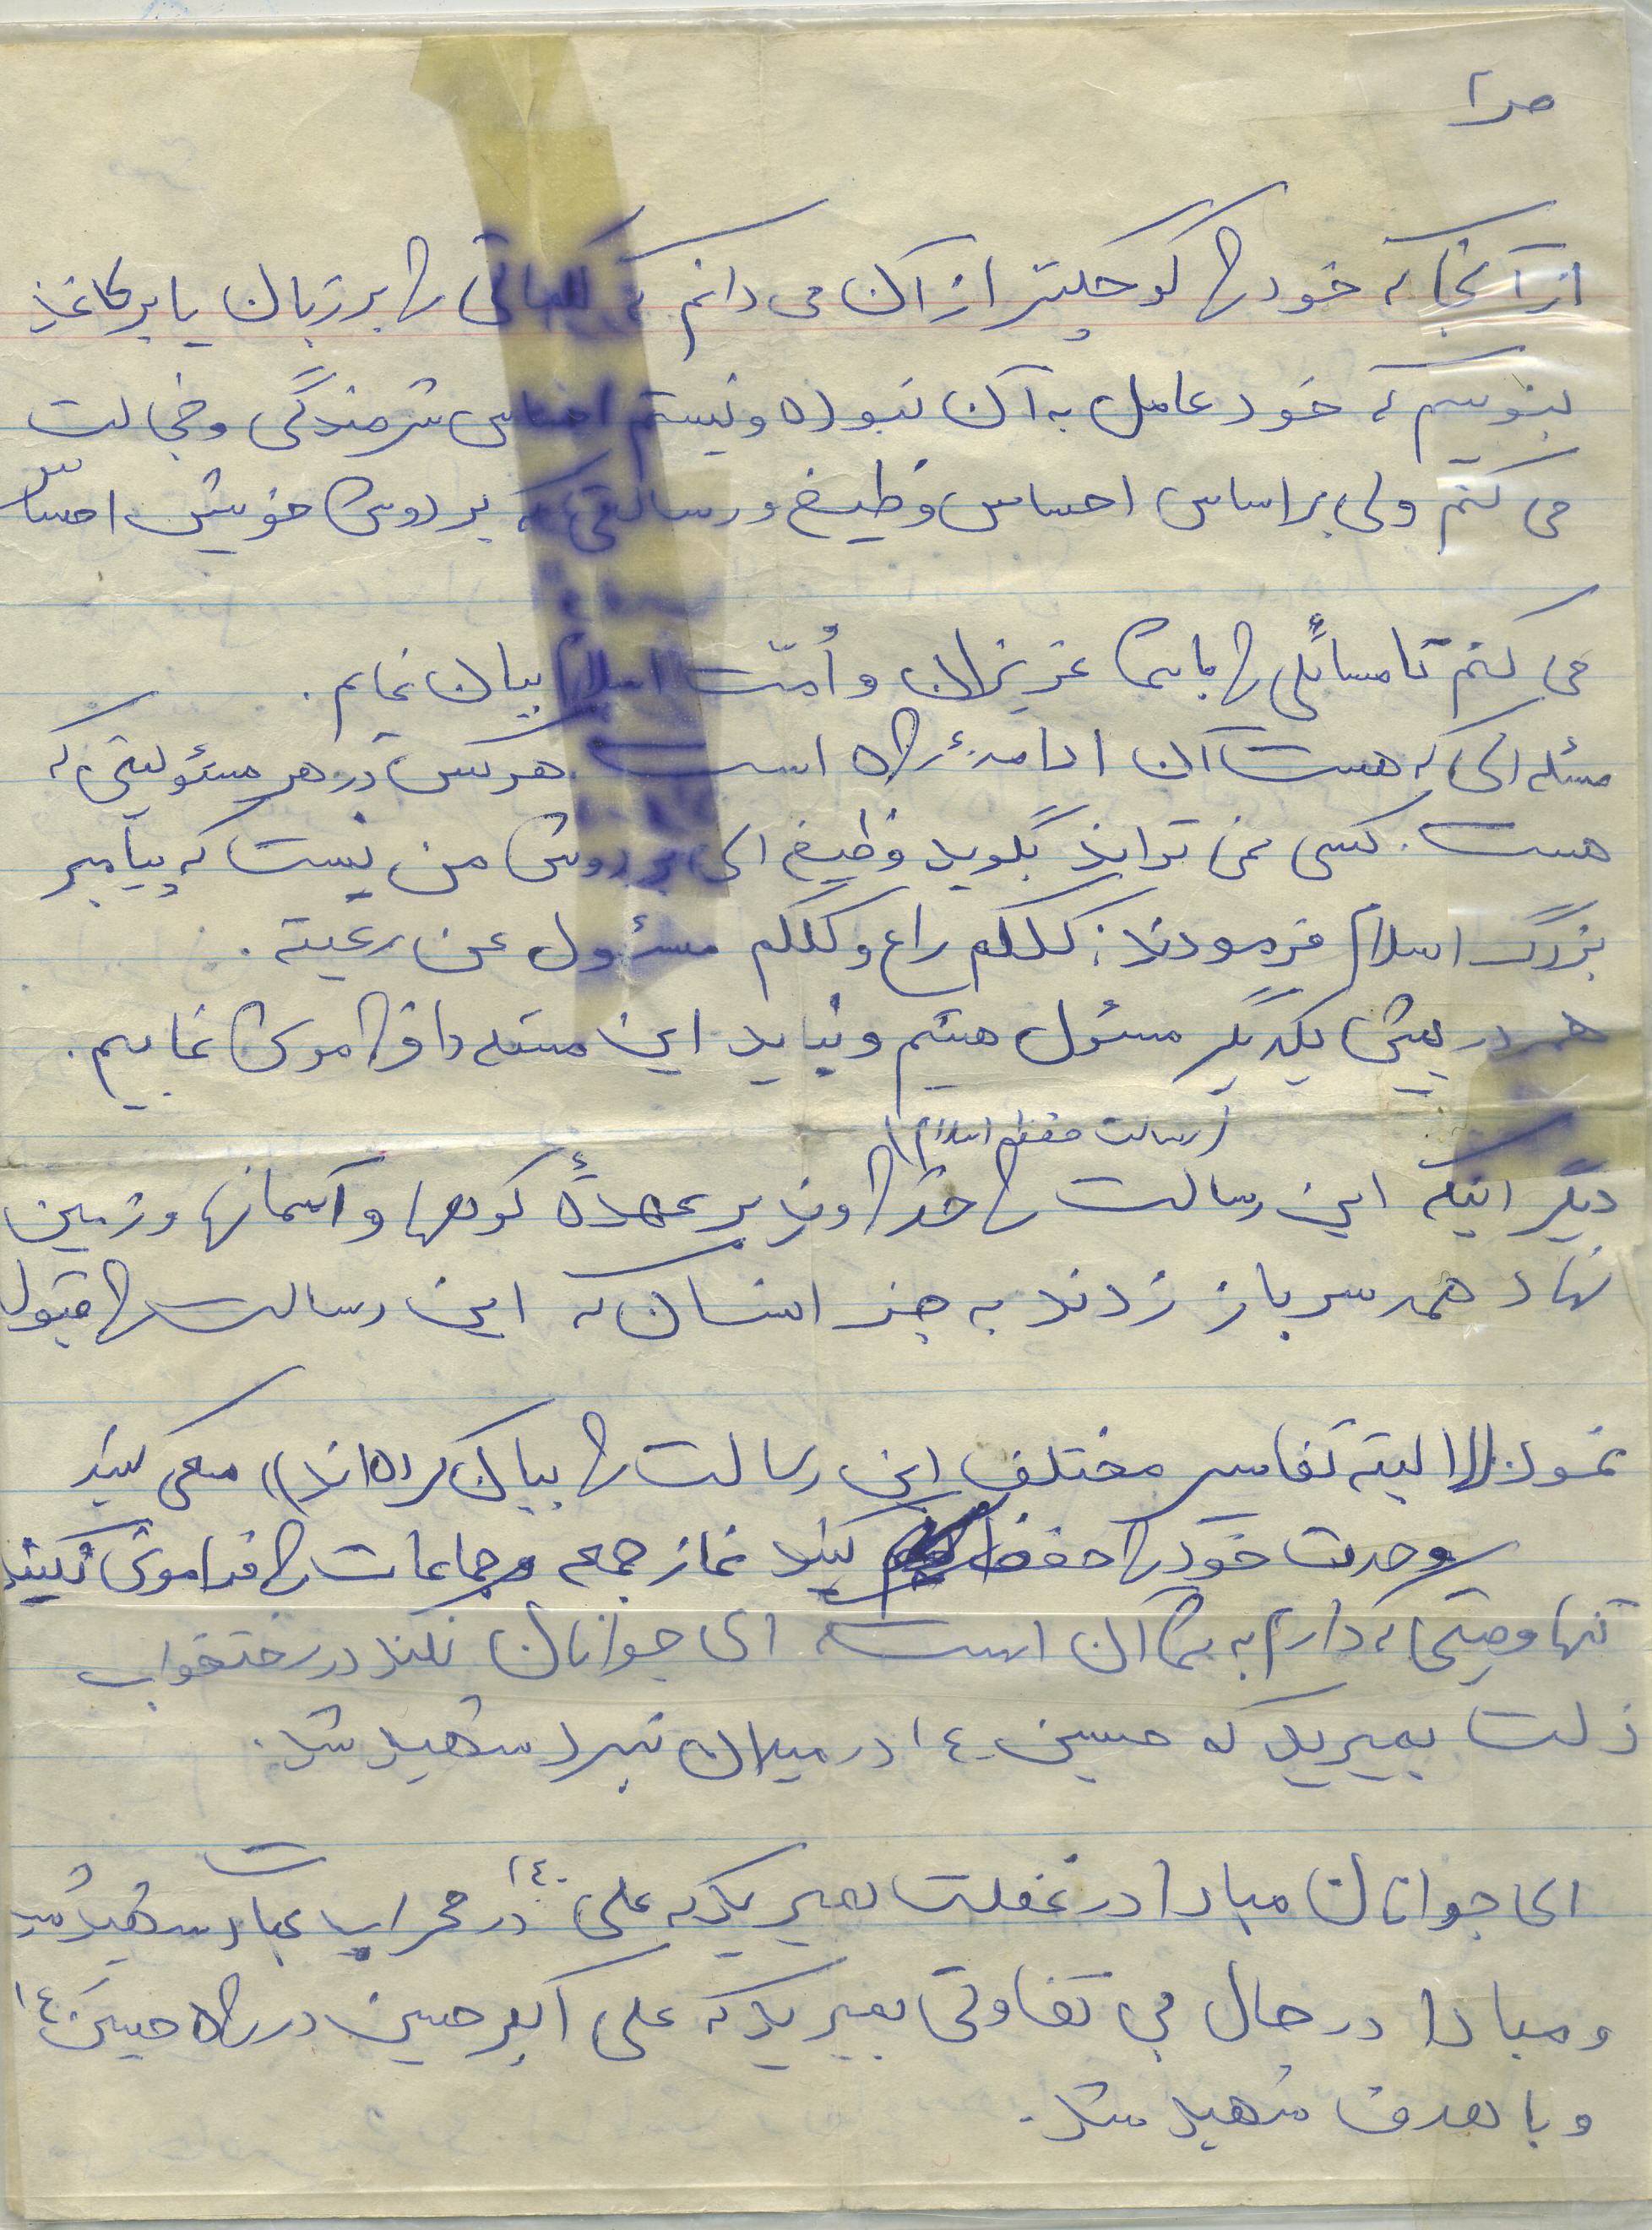 ص ۲
از آنجا که خود را کوچکتر از آن می دانم که کلماتی را بر زبان یا بر کاغذ
بنویسم که خود عامل به آن نبوده و نیستم احساس شرمندگی و خجالت
می کنم ولی بر اساس احساس وظیفه و رسالتی که بر دوش خویش احساس
می کنم تا مسائلی را با شما عزیزان و اُمّت اسلام بیان نمایم.
مسئله ای که هست آن ادامهٔ راه است. هر کس در هر مسئولیتی که
هست. کسی نمی تواند بگوید وظیفه ای بر دوش من نیست که پیامبر
بزرگ اسلام فرمودند: کلکم راع و کلکم مسؤول عن رعیته.
همه در پیش یکدیگر مسئول هستیم و نباید این مسئله را فراموش نمائیم.
(رسالت حفظ اسلام)
دیگر اینکه این رسالت را خداوند بر عهدهٔ کوهها و آسمانها و زمین
نهاد همه سر باز زدند به جز انسان که این رسالت را قبول
نمود ((البته تفاسیر مختلف این رسالت را بیان کرده اند)) سعی کنید
وحدت خود را حفظ کنید نماز جمعه و جماعات را فراموش نکنید
تنها وصیتی که دارم به شما آن است که ای جوانان نکند در رختخواب
ذلت بمیرید که حسین ع در میدان نبرد شهید شد.
ای جوانان مبادا در غفلت بمیرید که علی ع در محراب عبادت شهید شد
و مبادا در حال بی تفاوتی بمیرید که علی اکبر حسین در راه حسین ع
و با هدف شهید شد.